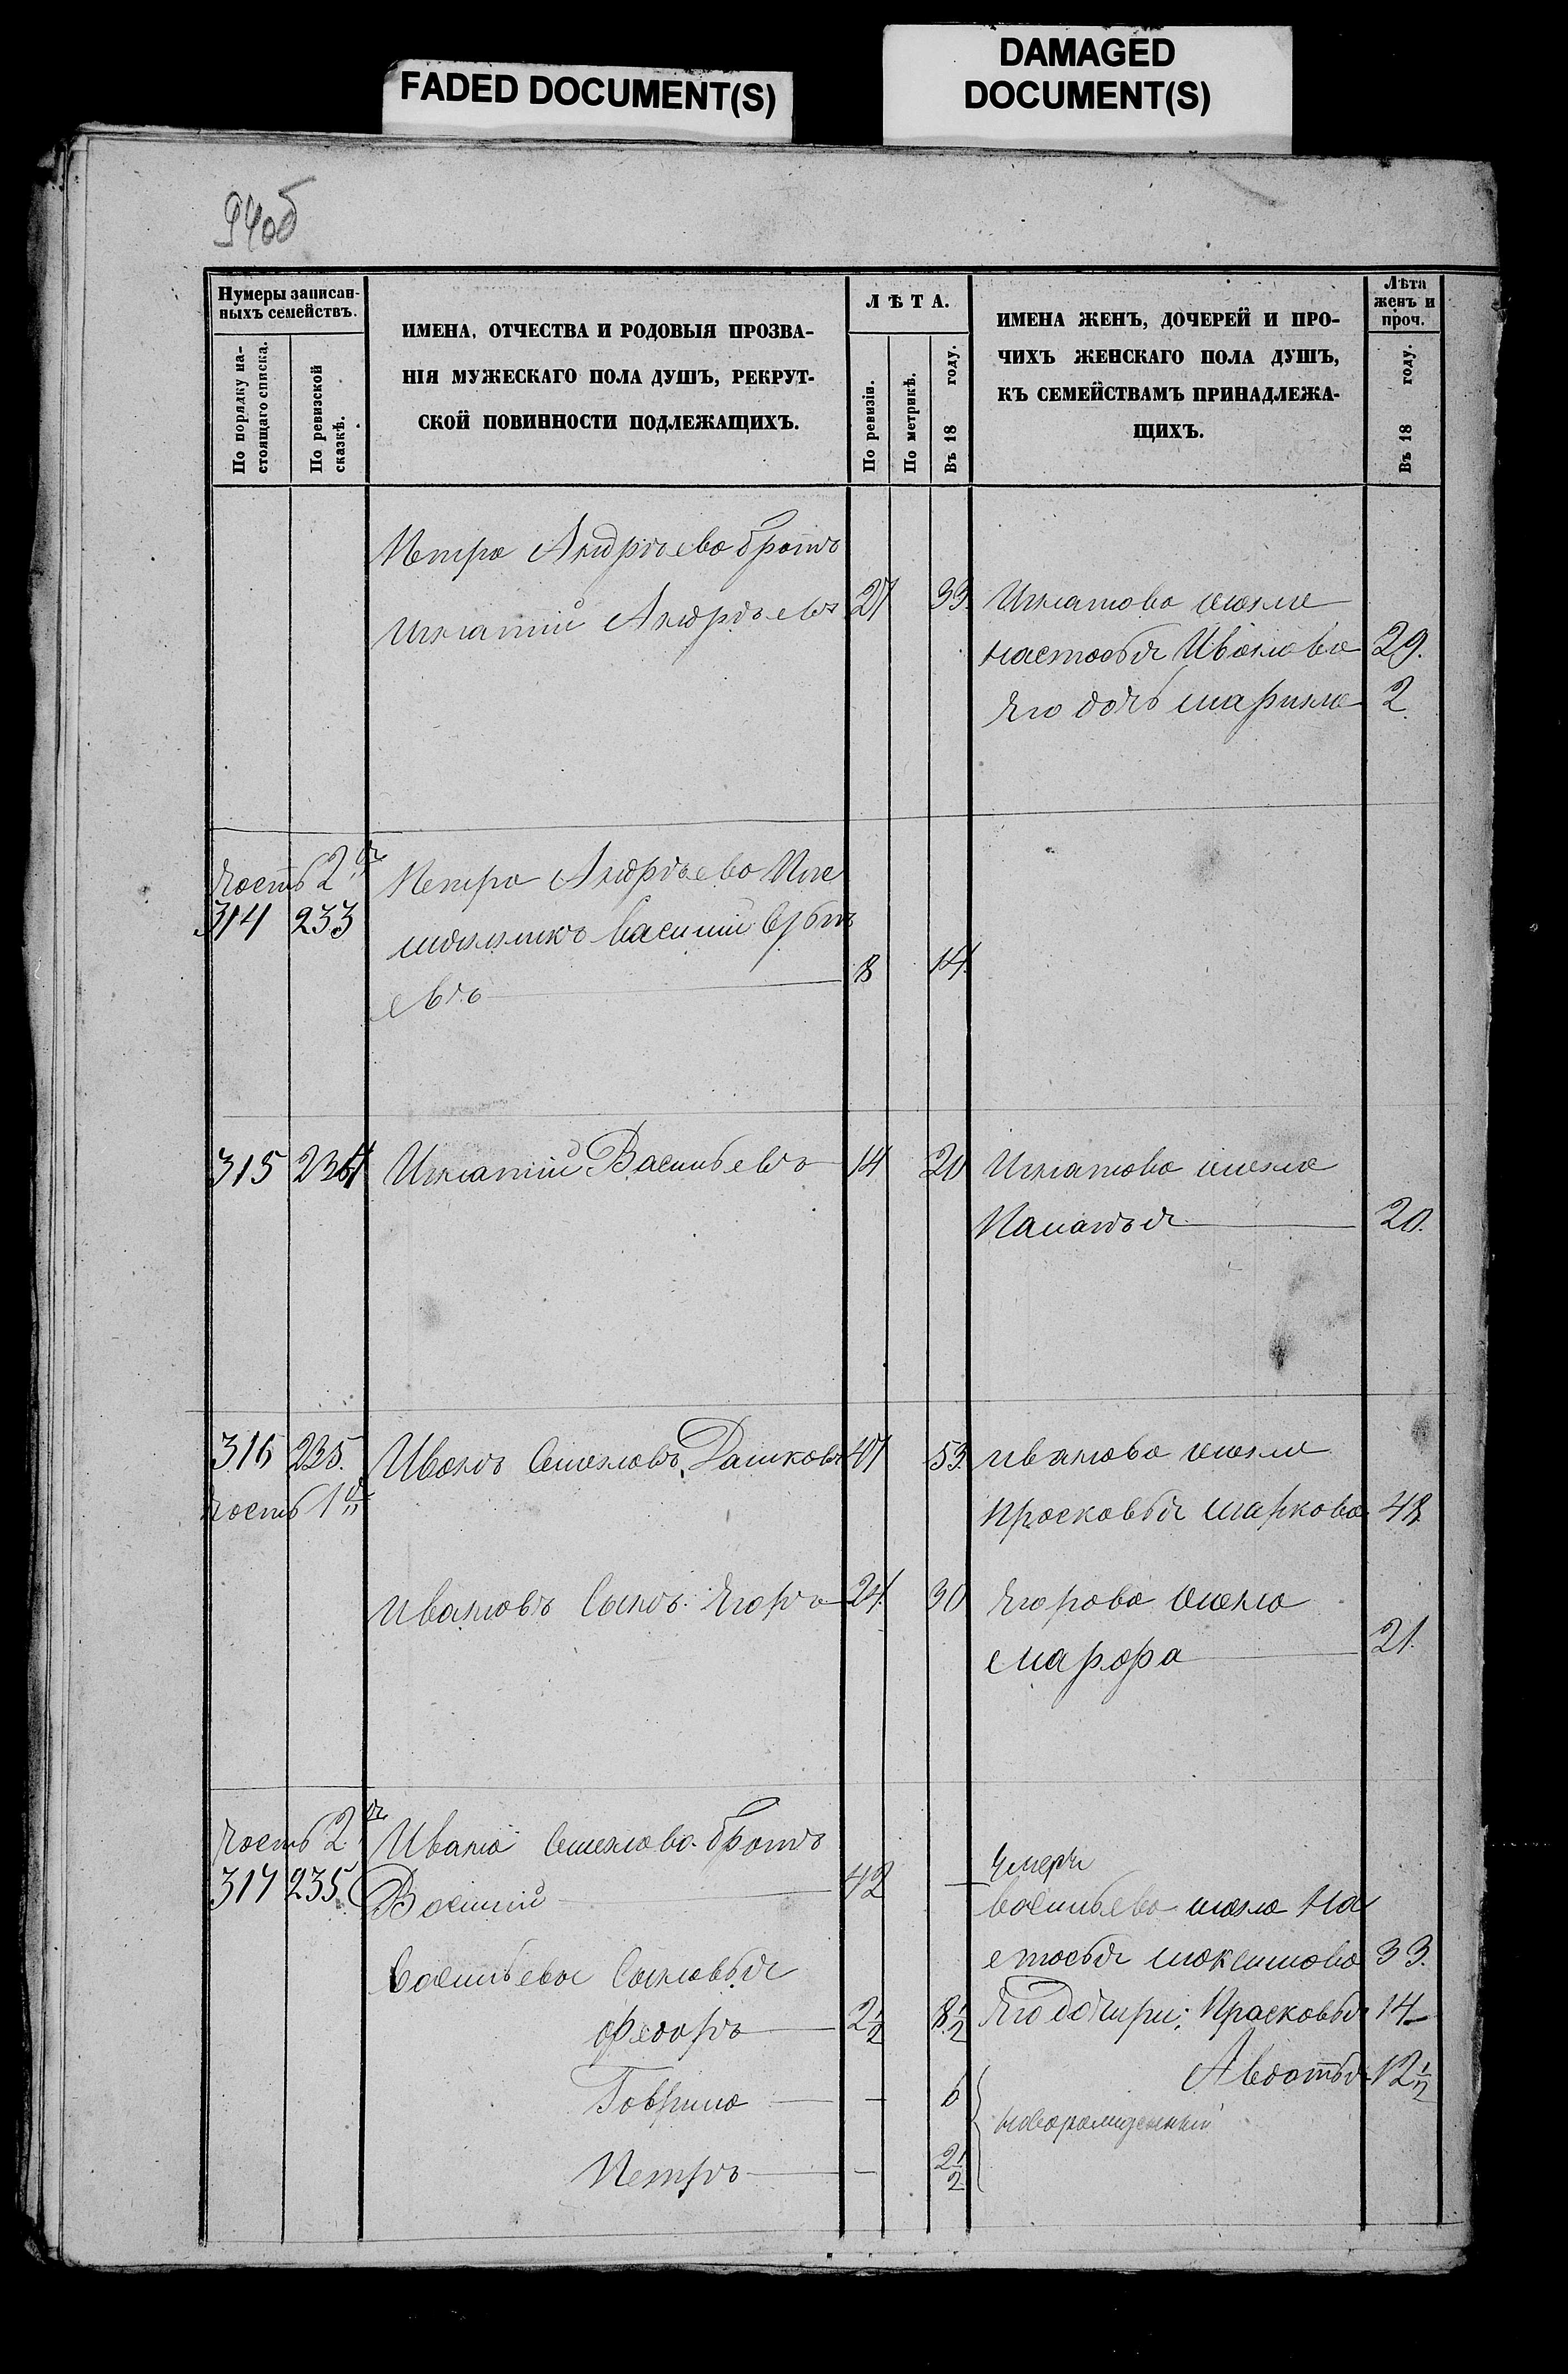 FADED DOCUMENT(S)
DAMAGED
DOCUMENT(S)
94об
Нумеры записан-
ныхъ семействъ.
По порядку на-
стоящаго списка.
По ревизской
сказкѣ.
ИМЕНА, ОТЧЕСТВА И РОДОВЫЯ ПРОЗВА-
НІЯ МУЖЕСКАГО ПОЛА ДУШЪ, РЕКРУТ-
СКОЙ ПОВИННОСТИ ПОДЛЕЖАЩИХЪ.
ЛѢТА.
По ревизіи.
По метрикѣ.
Въ 18 году.
ИМЕНА ЖЕНЪ, ДОЧЕРЕЙ И ПРО-
ЧИХЪ ЖЕНСКАГО ПОЛА ДУШЪ,
КЪ СЕМЕЙСТВАМЪ ПРИНАДЛЕЖА-
ЩИХЪ.
Лѣта
женъ и
проч.
Въ 18 году.
Петра Андрѣева братъ
Игнатій Андрѣевъ 27 33. Игнатова жена
настасья Иванова 29.
Его дочь марина 2.
Часть 2я Петра Андрѣева Пле
314 233 мянникъ василий
евъ 8 14.
315 234 Игнатій Васильевъ 14 20 Игнатова жена
Палагѣя 20.
316 235. Иванъ Семеновъ Дашковъ 47 53. иванова жена
Часть 1я прасковья маркова 48.
ивановъ Сынъ Егоръ 24. 30 Егорова жена
марфа 21.
Часть 2я Ивана Семенова братъ
317 235. Василий 42 — Умеръ
васильева жена На
стасья максимова 33.
Васильевы Сыновья
федоръ 2½ 8½ Его дочири: Прасковья 14
Авдотья 12½
Гаврила — 6
новорожденный
Петръ — 2½